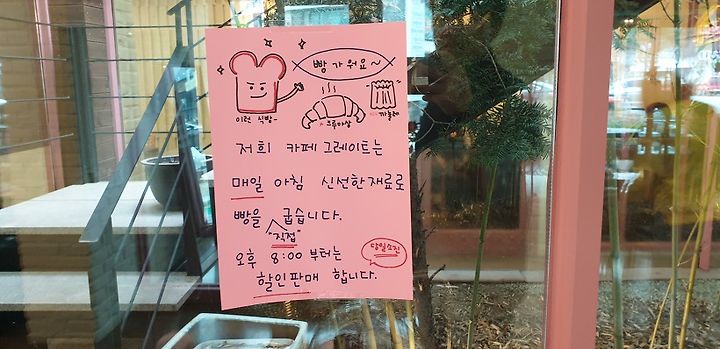 빵가워요~
이런 식빵~
크루아상
까눌레
저희 카페 그레이트는
매일 아침 신선한 재료로
빵을 굽습니다.
"직접"
당일소진
오후 8:00 부터는
할인판매 합니다.